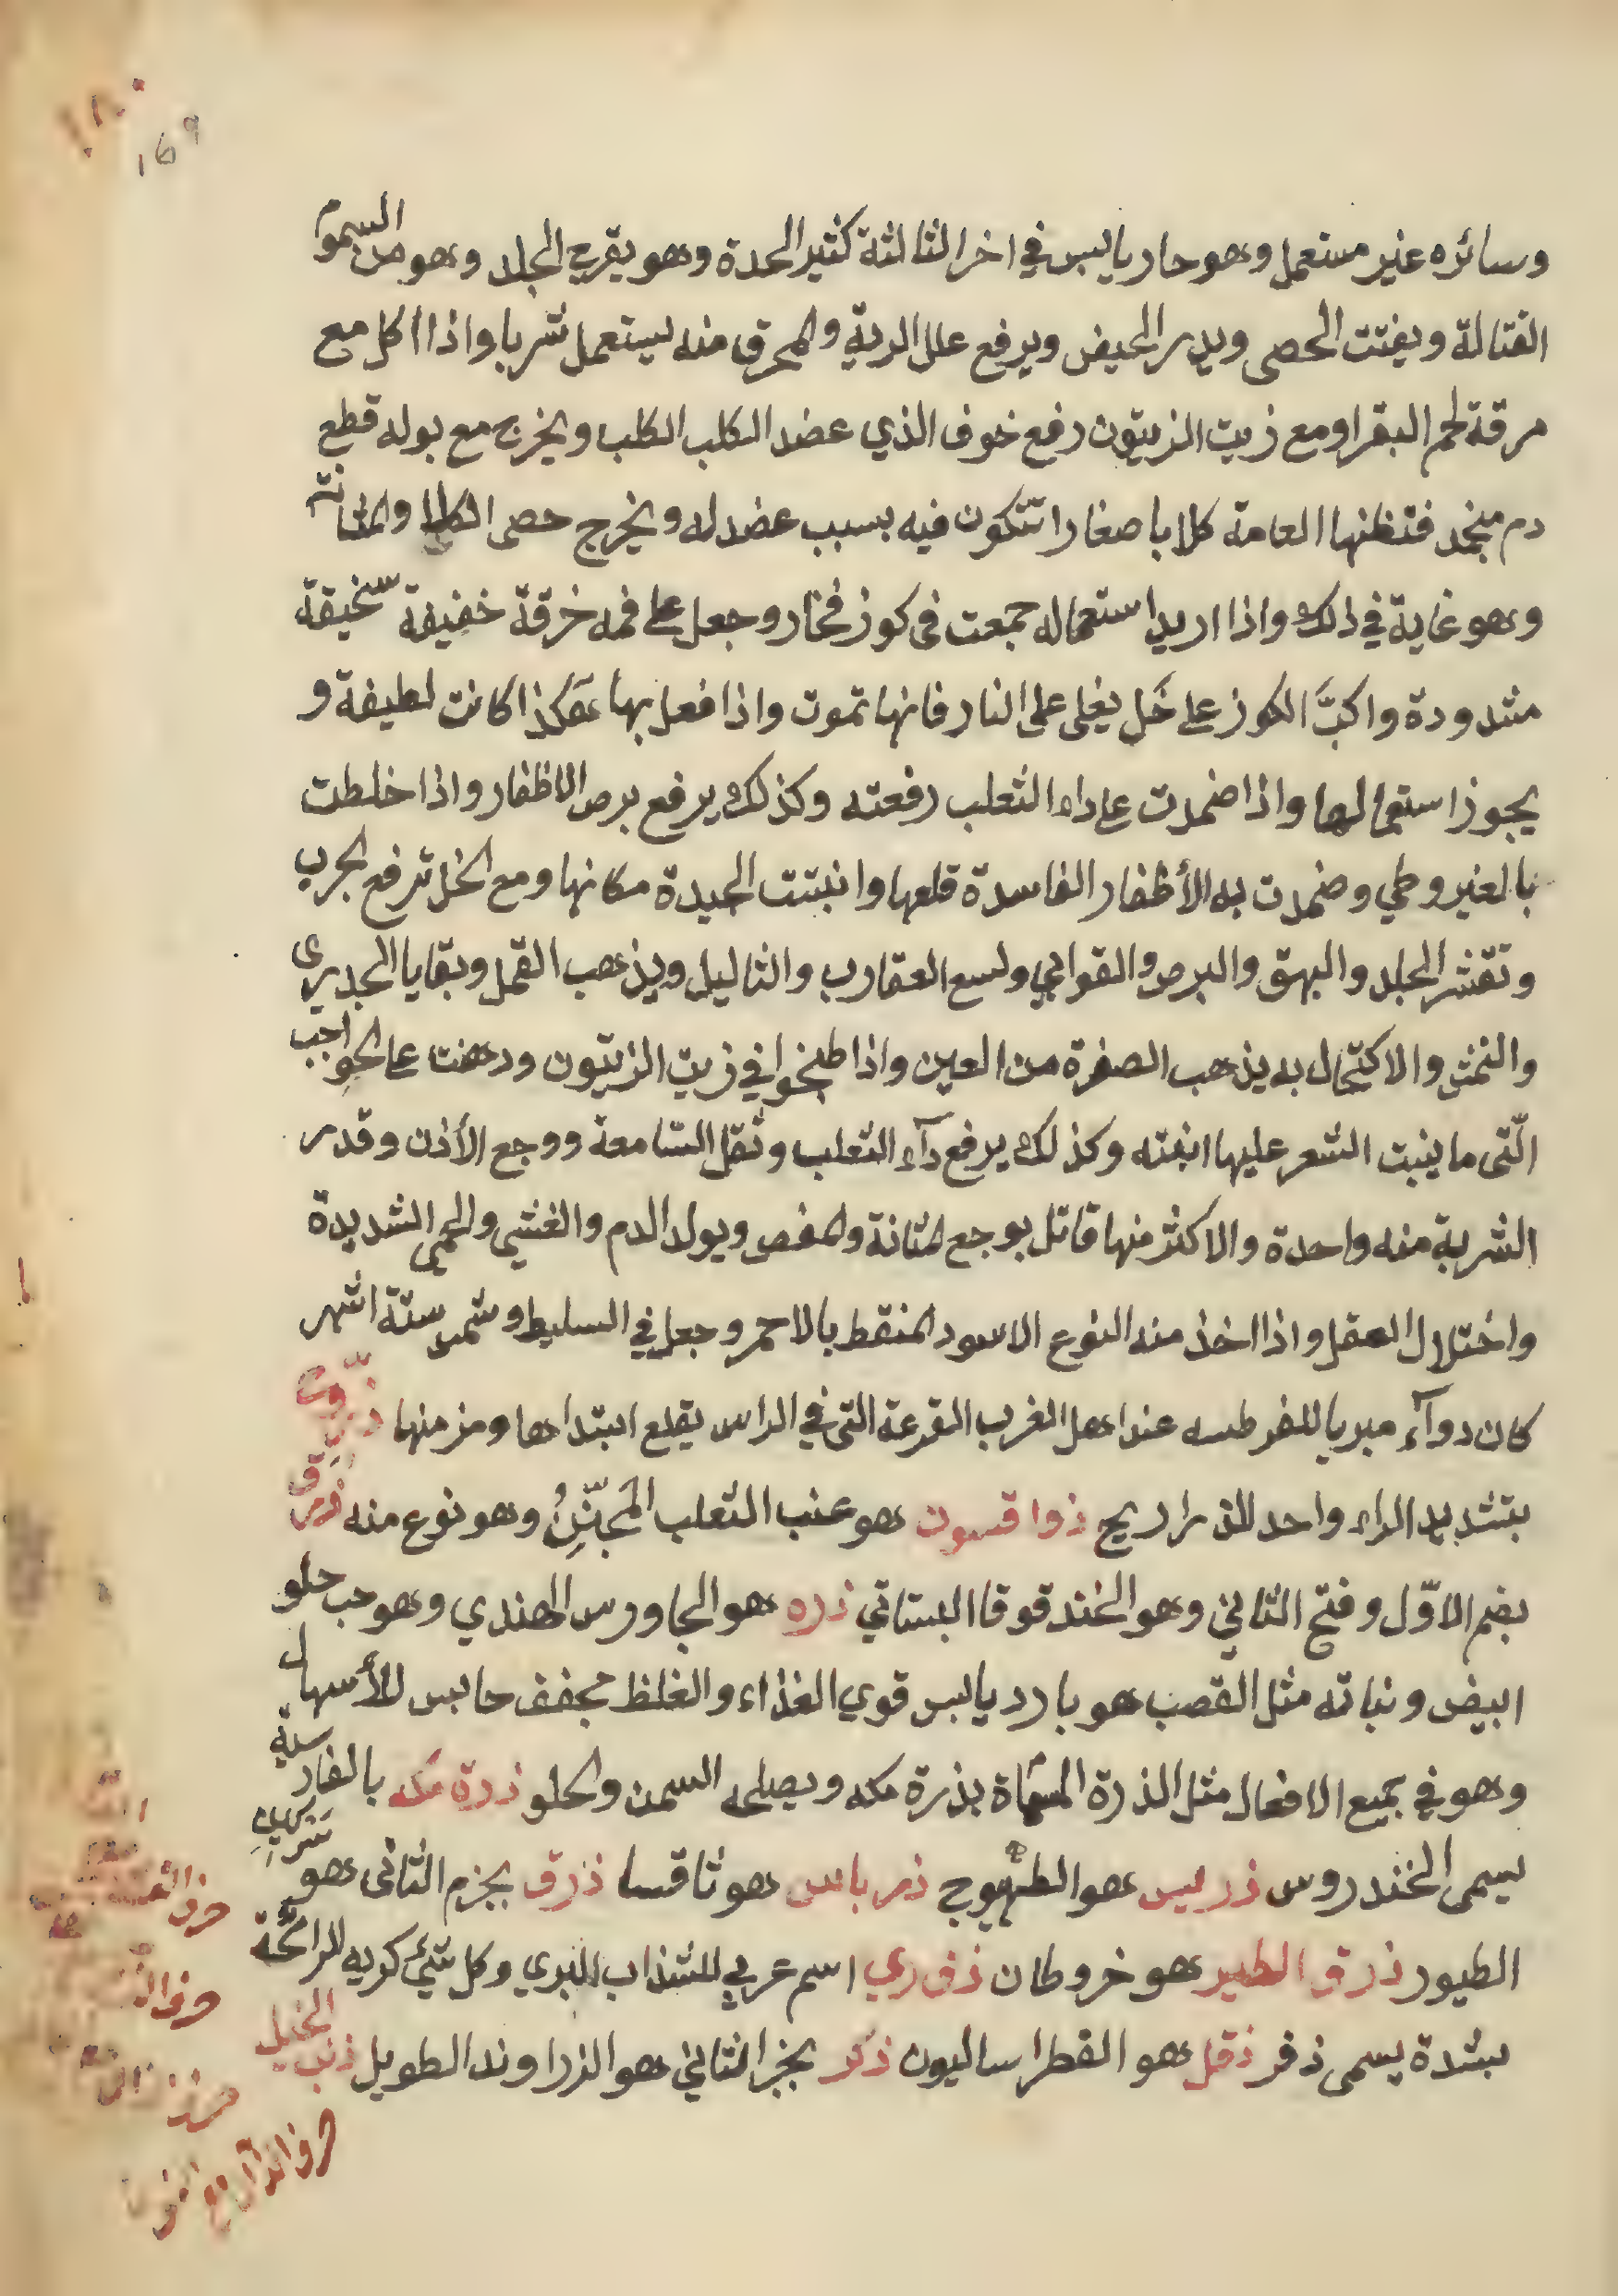 169
وسائره غير مستعمل وهو حار يابس في اخر الثالثة كثير الحدة وهو يقرح الجلد وهو من السموم
القتالة ويفتت الحصى ويدر الحيض ويرفع علل الرية والمحرق منه يستعمل شربا واذا اكل مع
مرقة لحم البقر او مع زيت الزيتون رفع خوف الذي عضد الكلب الكلب ويخرج مع بوله قطع
دم منجمد فتظنها العامة كلابا صغارا تتكون فيه بسبب عضد له ويخرج حصى الكلا والمثانة
وهو غاية في ذلك واذا اريد استعماله جمعت في كوز فخار وجعل على فمه خرقة خفيفة سخيفة
مشدودة واكبَّ الكوز على خَل يغلى على النار فانها تموت واذا فعل بها هكذا كانت لطيفة و
يجوز استعمالها واذا ضمدت على داء الثعلب رفعته وكذلك يرفع برص الاظفار واذا خلطت
بالغيروطي وضمدت به الأظفار الفاسدة قلعها وانبتت الجيدة مكانها ومع الخل ترفع الجرب
وتقشر الجلد والبهق والبرص والقوابي ولسع العقارب والثاليل ويذهب القمل وبقايا الجدري
والنمش والاكتحال به يذهب الصفرة من العين واذا طبخوا في زيت الزيتون ودهنت على الحواجب
الّتى ما ينبت الشعر عليها انبته وكذلك يرفع دآء الثعلب وثقل السّامعة ووجع الأذن وقدر
الشربة منه واحدة والاكثر منها قاتل بوجع المثانة والمغص وبول الدم والغشي والحمى الشديدة
واختلال العقل واذا اخذ منه النوع الاسود المنقط بالاحمر وجعل في السليط وشمس ستة اشهر
كان دوآء مبريا للفرطسه عند اهل الغرب القرعة التى في الراس يقلع ابتداها ومزمنها ذرّوح
بتشديد الراء واحد للذراريح ذواقسون هو عنب الثعلب المُجنِّنُ وهو نوع منه ذرق
بضم الاوّل وفتح الثاني وهو الخندقوقا البستاني ذره هو الجاورس الهندي وهو حب حلو
ابيض ونباته مثل القصب هو بارد يابس قوي الغذاء والغلظ مجفف حابس للأسهال
وهو في جميع الافعال مثل الذرة المسّماة بذرة مكه ويصلحه السمن والحلو ذرة مكه بالفارسية
يسمى الخندروس ذريس هو الطهيوج ذرباس هو ثاقسا ذرق بجزم الثانى هو سركين
الطيور ذرق الطير هو خروطان ذفرري اسم عربي للشذاب البري وكل شئ كريه الرائحة
بشدة يسمى ذفر ذقل هو القطراساليون ذكر بجزم الثاني هو الزراوند الطويل ذنب الخيل